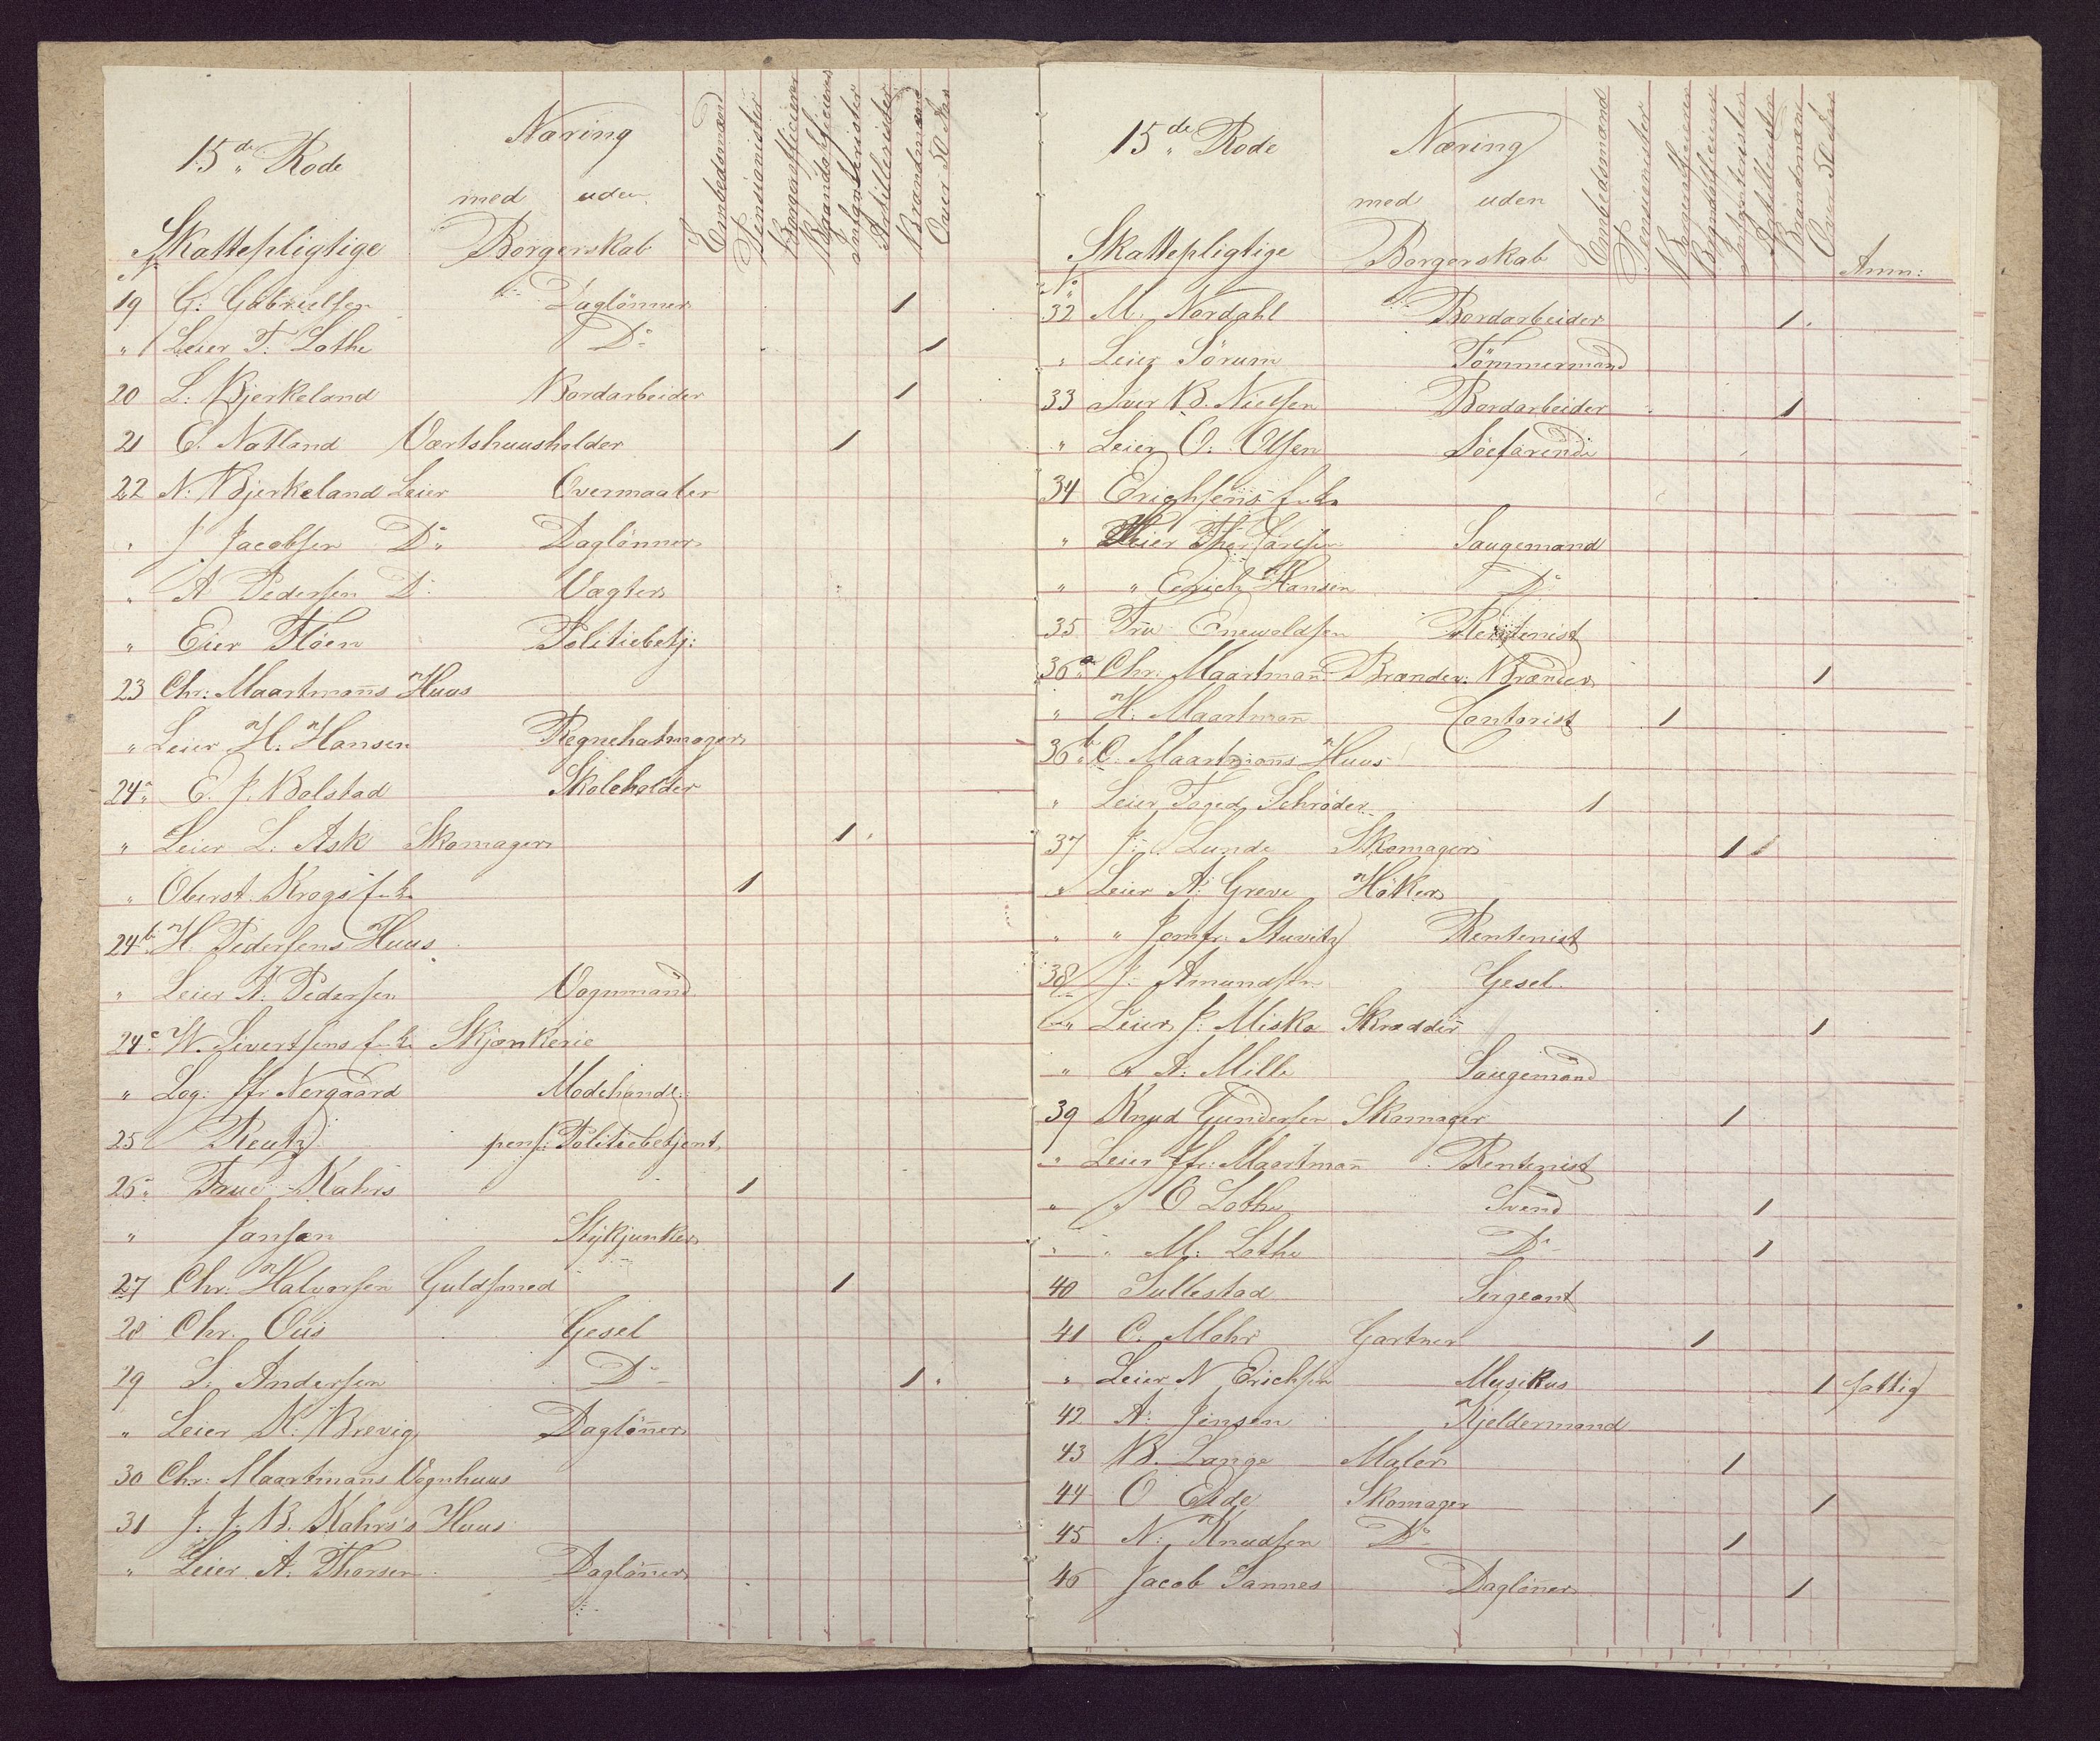 15de Rode
Næring
med uden
Skattepligtige Borgerskab
Embedsmænd
Pensionister
Borgerofficierer
Brandofficierer
Infanterister
Artillerister
Brandmænd
Over 50 Aar
No
19 G: Gabrielsen Daglönner 1
" Leier T: Lothe Do 1
20 L: Bjerkeland Bordarbeider 1
21 E. Natland Værtshuusholder 1
22 N: Bjerkeland Leier Overmaaler
" J Jacobsen Do Daglönner
" A Pedersen Do Vægter
" Eier Flöen Politiebetj:
23 Chr: Maartmanns Huus
" Leier H. Hansen Regnehatmager
24a E. J. Bolstad Skoleholder
" Leier L: Ask Skomager 1
" Oberst Krogs 1
24b H. Pedersens Huus
" Leier A. Pedersen Vognmand
24c W. Sivertsens Skjænkerie
" Log: Jfr Nergaard Modehandl:
25 Reutz pens: Politiebetjent
26 Frue Kahrs 1
" Jansen Stykjunker
27 Chr: Halvorsen Guldsmed 1
28 Chr. Ous Gesel
29 S: Andersen Do 1
" Leier K: Brevig Daglönner
30 Chr: Maartmanns Vognhuus
31 J. J. B. Kahrs's Huus
" Leier A: Thorsen Daglönner
15de Rode
Næring
med uden
Skattepligtige Borgerskab
Embedsmænd
Pensionister
Borgerofficierer
Brandofficierer
Infanterister
Artillerister
Brandmænd
Over 50 Aar
Anm:
No
32 M. Nordahl Bordarbeider 1
" Leier Sörum Tömmermand
33 Iver B. Nielsen Bordarbeider 1
" Leier O: Olsen Söefarende
34 Erichsens
" Leier Saugemand
" " Erich Hansen Do
35 Fru Enevoldsen Rentenist
36a Chr: Maartmann Brænder: Brænder 1
" H: Maartmann Contorist 1
36b C. Maartmanns Huus
" Leier Foged Schröder 1
37 J: Lunde Skomager 1
" Leier A: Greve Höker
" " Jomfr: Stuwitz Rentenist
38 J. Amundsen Gesel
" Leier J: Miska Skrædder 1
" " A: Mille Saugemand
39 Knud Gundersen Skomager 1
" Leier Jfr: Maartmann Rentenist
" " O Lothe Svend 1
" " M: Lothe Do 1
40 Sullestad Sergeant
41 C. Mohr Gartner 1
" Leier N Erichsen Musikus 1 fattig
42 A: Jensen Kjeldermand
43 B. Lange Maler 1
44 O Eide Skomager 1
45 N: Knudsen Do 1
46 Jacob Sannes Daglönner 1